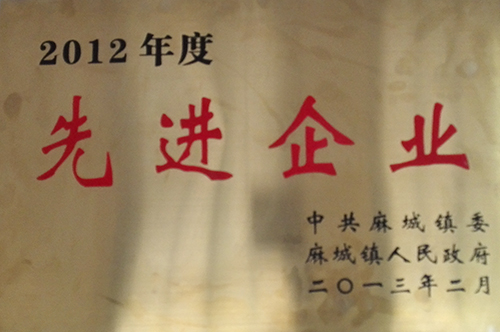 2012年度
先进企业
中共麻城镇委
麻城镇人民政府
二〇一三年二月